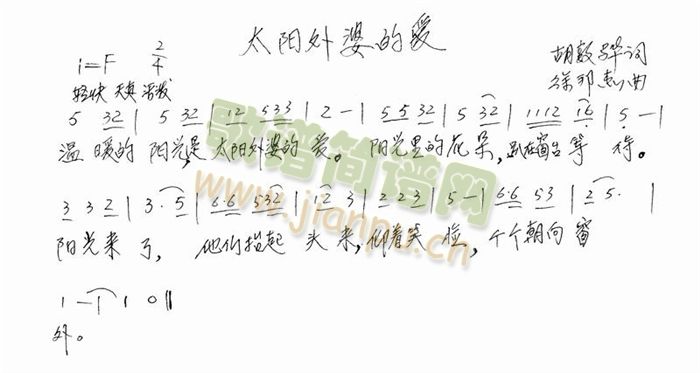 太阳外婆的爱
1=F 2/4
胡敦华词
轻快 天真 活泼
徐邦杰曲
5 32 | 5 32 | 12 533 | 2 - | 5532 | 5 32 | 1112 16 | 5 - |
温 暖的 阳光是 太阳外婆的 爱。 阳光里的花朵, 趴在窗台等 待。
3 3 2 | 3. 5 | 6.6 532 | 12 3 | 2 2 3 | 5 - | 6.6 53 | 2 5. |
阳光来了, 他们抬起 头来, 仰着笑 脸, 个个朝向 窗
1 - | 1 0 ||
外。
歌谱简谱网
www.jianpu.cn